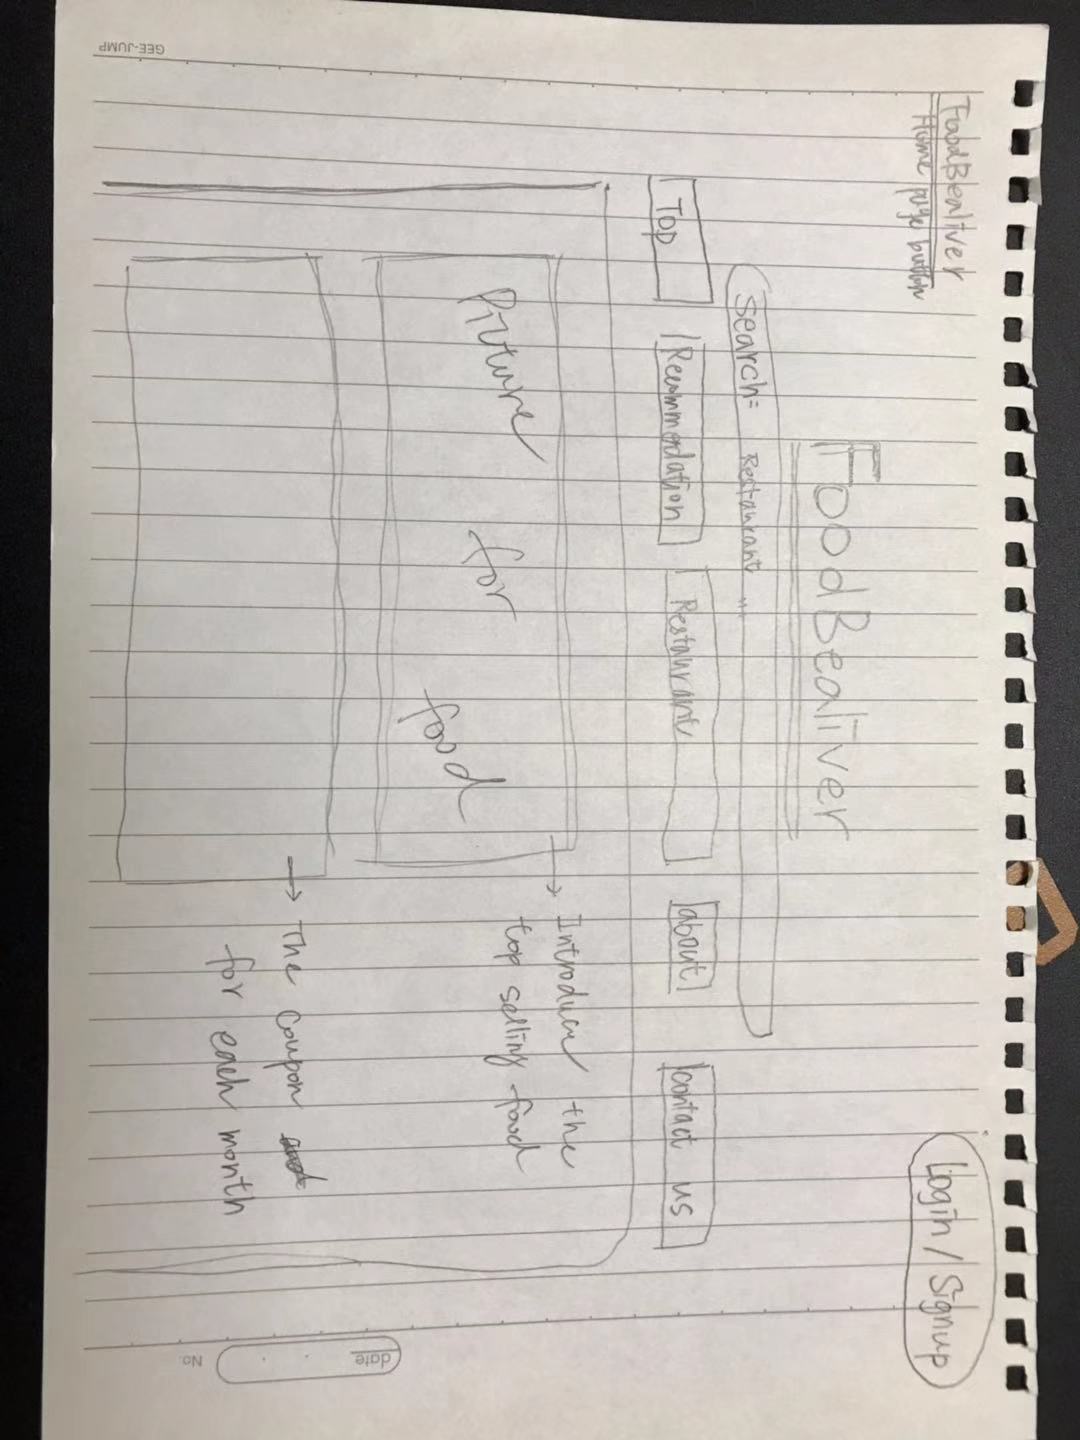 FoodBealiver
Home page button
Login / Signup
FoodBealiver
Search: Restaurant "
Top
Recommendation
Restaurant
about
contact us
Picture for food
→ Introduce the
top selling food
→ The coupon
for each month
GEE-JUMP
date
No.